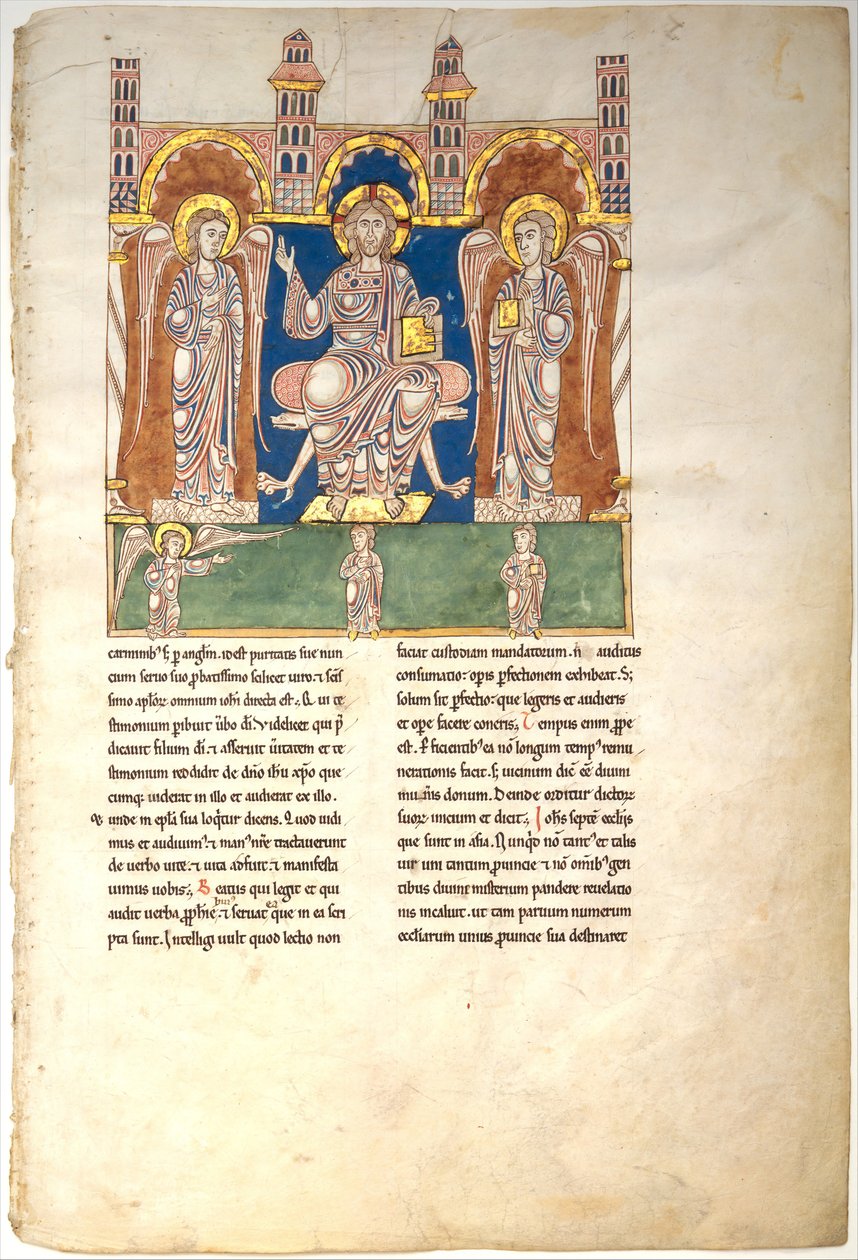 carminibꝰ ꝫ p̱ angl̄m. id est puritatis sue nun
cium seruo suo ꝓbatissimo scilicet uiro. ⁊ scīs
simo apl̄oꝝ omnium ioh̄i directa est. Qui te
stimonium ꝑibuit ūbo dī. Videlicet qui p̄
dicauit filium dī. ⁊ asseruit ūitatem et te
stimonium reddidit de dn̄o ih̄u xp̄o que
cumqꝫ uiderat in illo et audierat ex illo.
unde in epl̄a sua loq̄tur dicens. Quod uidi
mus et audiuimꝰ. ⁊ manꝰ nr̄e tractauerunt
de verbo uite. ⁊ uita adfuit. ⁊ manifesta
uimus uobis. Beatus qui legit et qui
audit uerba ꝓph̄ie ⁊ seruat ea que in ea scri
pta sunt. Intelligi uult quod lectio non
faciat custodiam mandatorum. n̄ auditus
consumatio. opis ꝑfectionem exhibeat. Sꝫ
solum sit ꝑfectio. que legeris et audieris
et ope facere coneris. Tempus enim ꝓpe
est. ꝑficientibꝰ ea nō longum tempꝰ remu
nerationis facit. sꝫ uicinum dic̄ ēē diuini
mun̄is donum. Deinde orditur dictoꝝ
suoꝝ inicium et dicit. Ioh̄s septē eccl̄iis
que sunt in asia. Nunq̄d nō tantꝰ et talis
uir uni tantum ꝓuincie ⁊ nō om̄ibꝰ gen
tibus diuini misterium pandere reuelatio
nis incaluit. ut tam paruum numerum
eccl̄iarum unius ꝓuincie sua destinaret